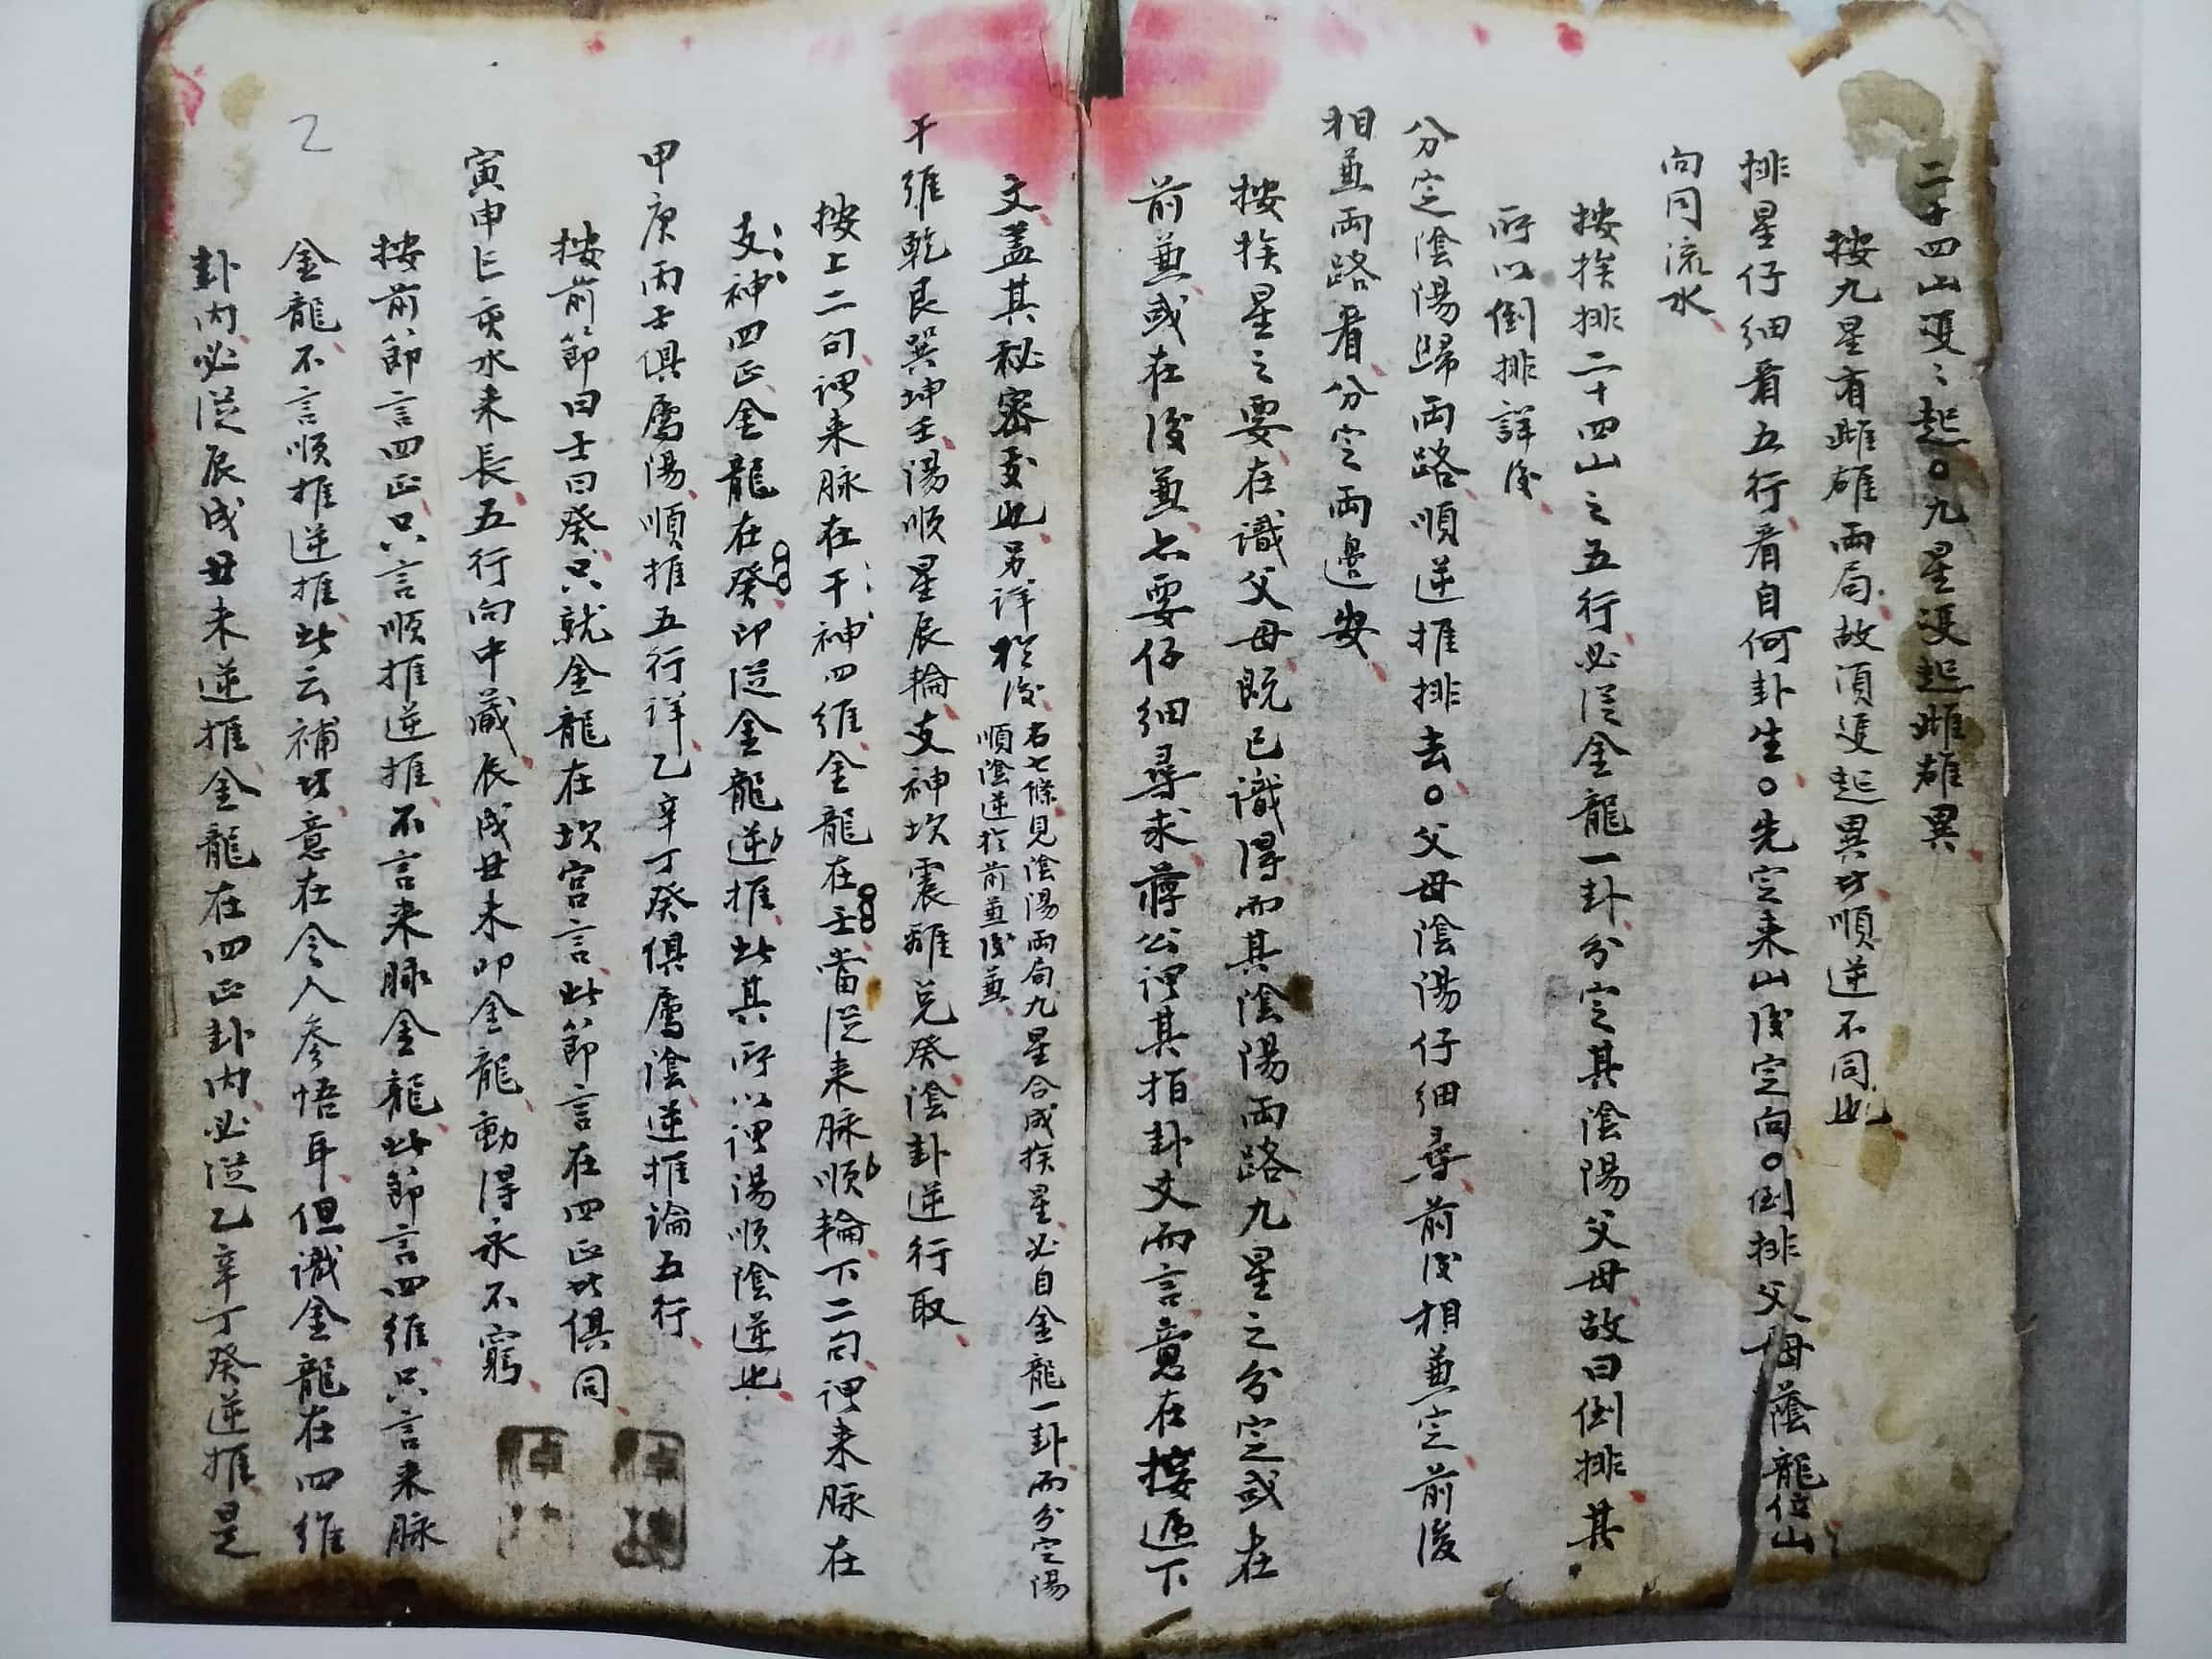 二十四山雙〻起。九星雙起雌雄異
按九星有雌雄兩局故須雙起異切順逆不同也
排星仔細看五行看自何卦生。先定来山後定向。倒排父母蔭龍位山
向同流水
按挨排二十四山之五行必從金龍一卦分定其陰陽父母故曰倒排其
所以倒排詳後
分定陰陽歸兩路順逆推排去。父母陰陽仔細尋前後相兼定前後
相兼兩路看分定兩邊安
按挨星之要在識父母既已識得而其陰陽兩路九星之分定或在
前兼或在後兼亦要仔細尋求蔣公謂其指卦爻而言意在接遞下
文盖其秘密處也另詳於後
右七條見陰陽兩局九星合成挨星必自金龍一卦而分定陽
順陰逆於前兼後兼
干維乾艮巽坤壬陽順星辰輪支神坎震離兌癸陰卦逆行取
按上二句謂来脉在干神四維金龍在壬當從来脉順輪下二句謂来脉在
支神四正金龍在癸即從金龍逆推此其所以謂陽順陰逆也
甲庚丙壬俱屬陽順推五行詳乙辛丁癸俱屬陰逆推論五行
按前節曰壬曰癸只就金龍在坎宮言此節言在四正皆俱同
寅申巳亥水来長五行向中藏辰戌丑未叩金龍動得永不窮
按前節言四正只言順推逆推不言来脉金龍此節言四維只言来脉
金龍不言順推逆推此云補切意在令人參悟耳但識金龍在四維
卦內必從辰戌丑未逆推金龍在四正卦內必從乙辛丁癸逆推是
2